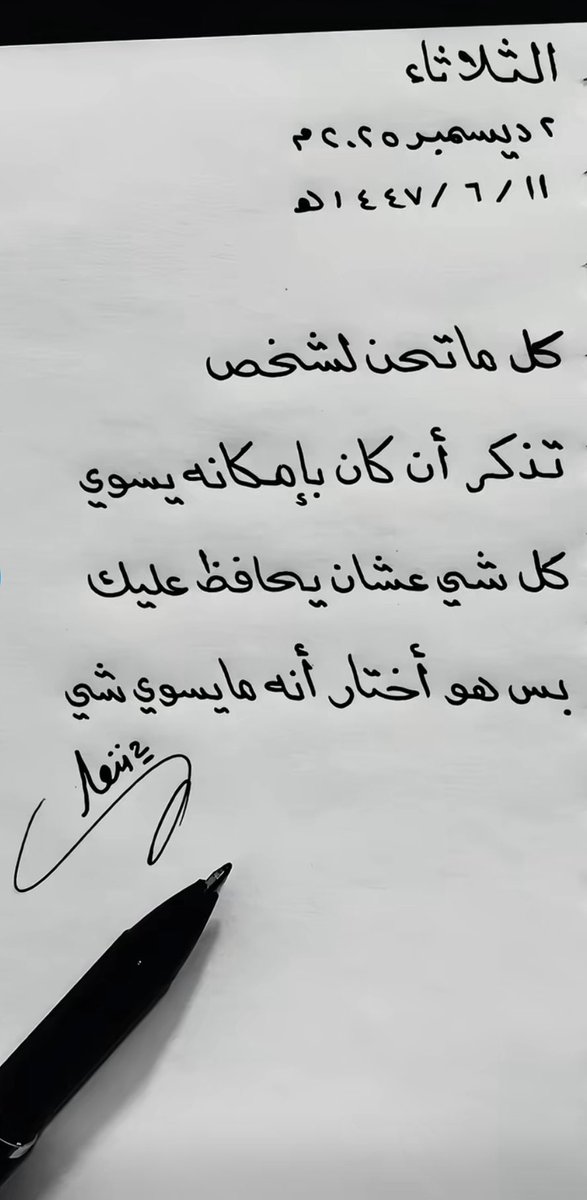 الثلاثاء
٢ ديسمبر ٢٠٢٥ م
١١ / ٦ / ١٤٤٧ هـ
كل ماتحن لشخص
تذكر أن كان بإمكانه يسوي
كل شي عشان يحافظ عليك
بس هو أختار أنه مايسوي شي